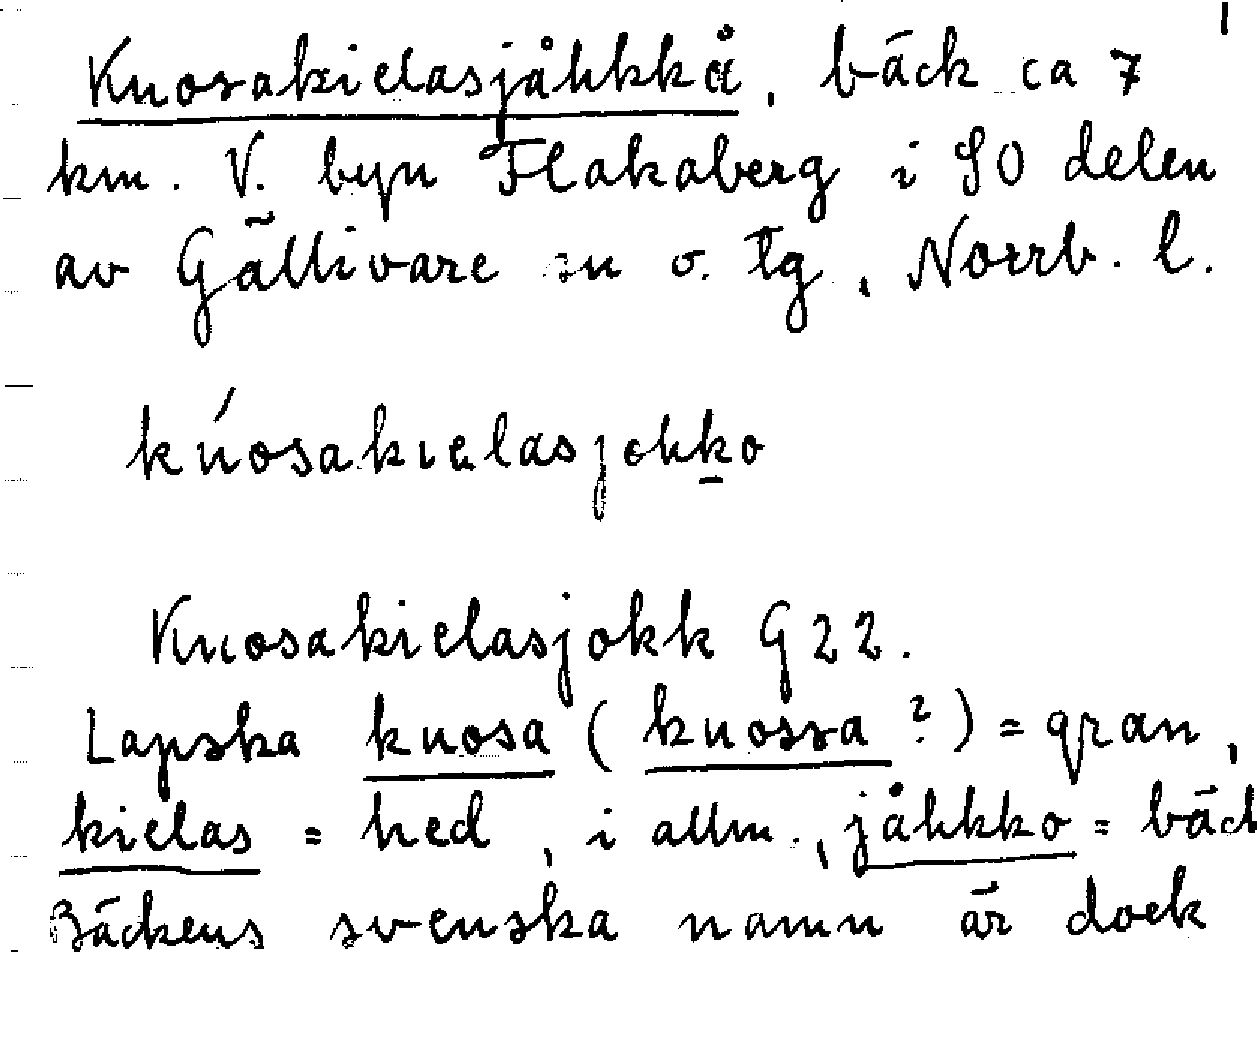 Kuosakielasjåhkkå, bäck ca 7
km. V. byn Flakaberg i SO delen
av Gällivare sn o. tg, Norrb. l.
kúosakielasjohko
Kuosakielasjokk G 22.
Lapska kuosa (kuossa?) = gran,
kielas = hed, i allm., jåhkko = bäck
Bäckens svenska namn är dock